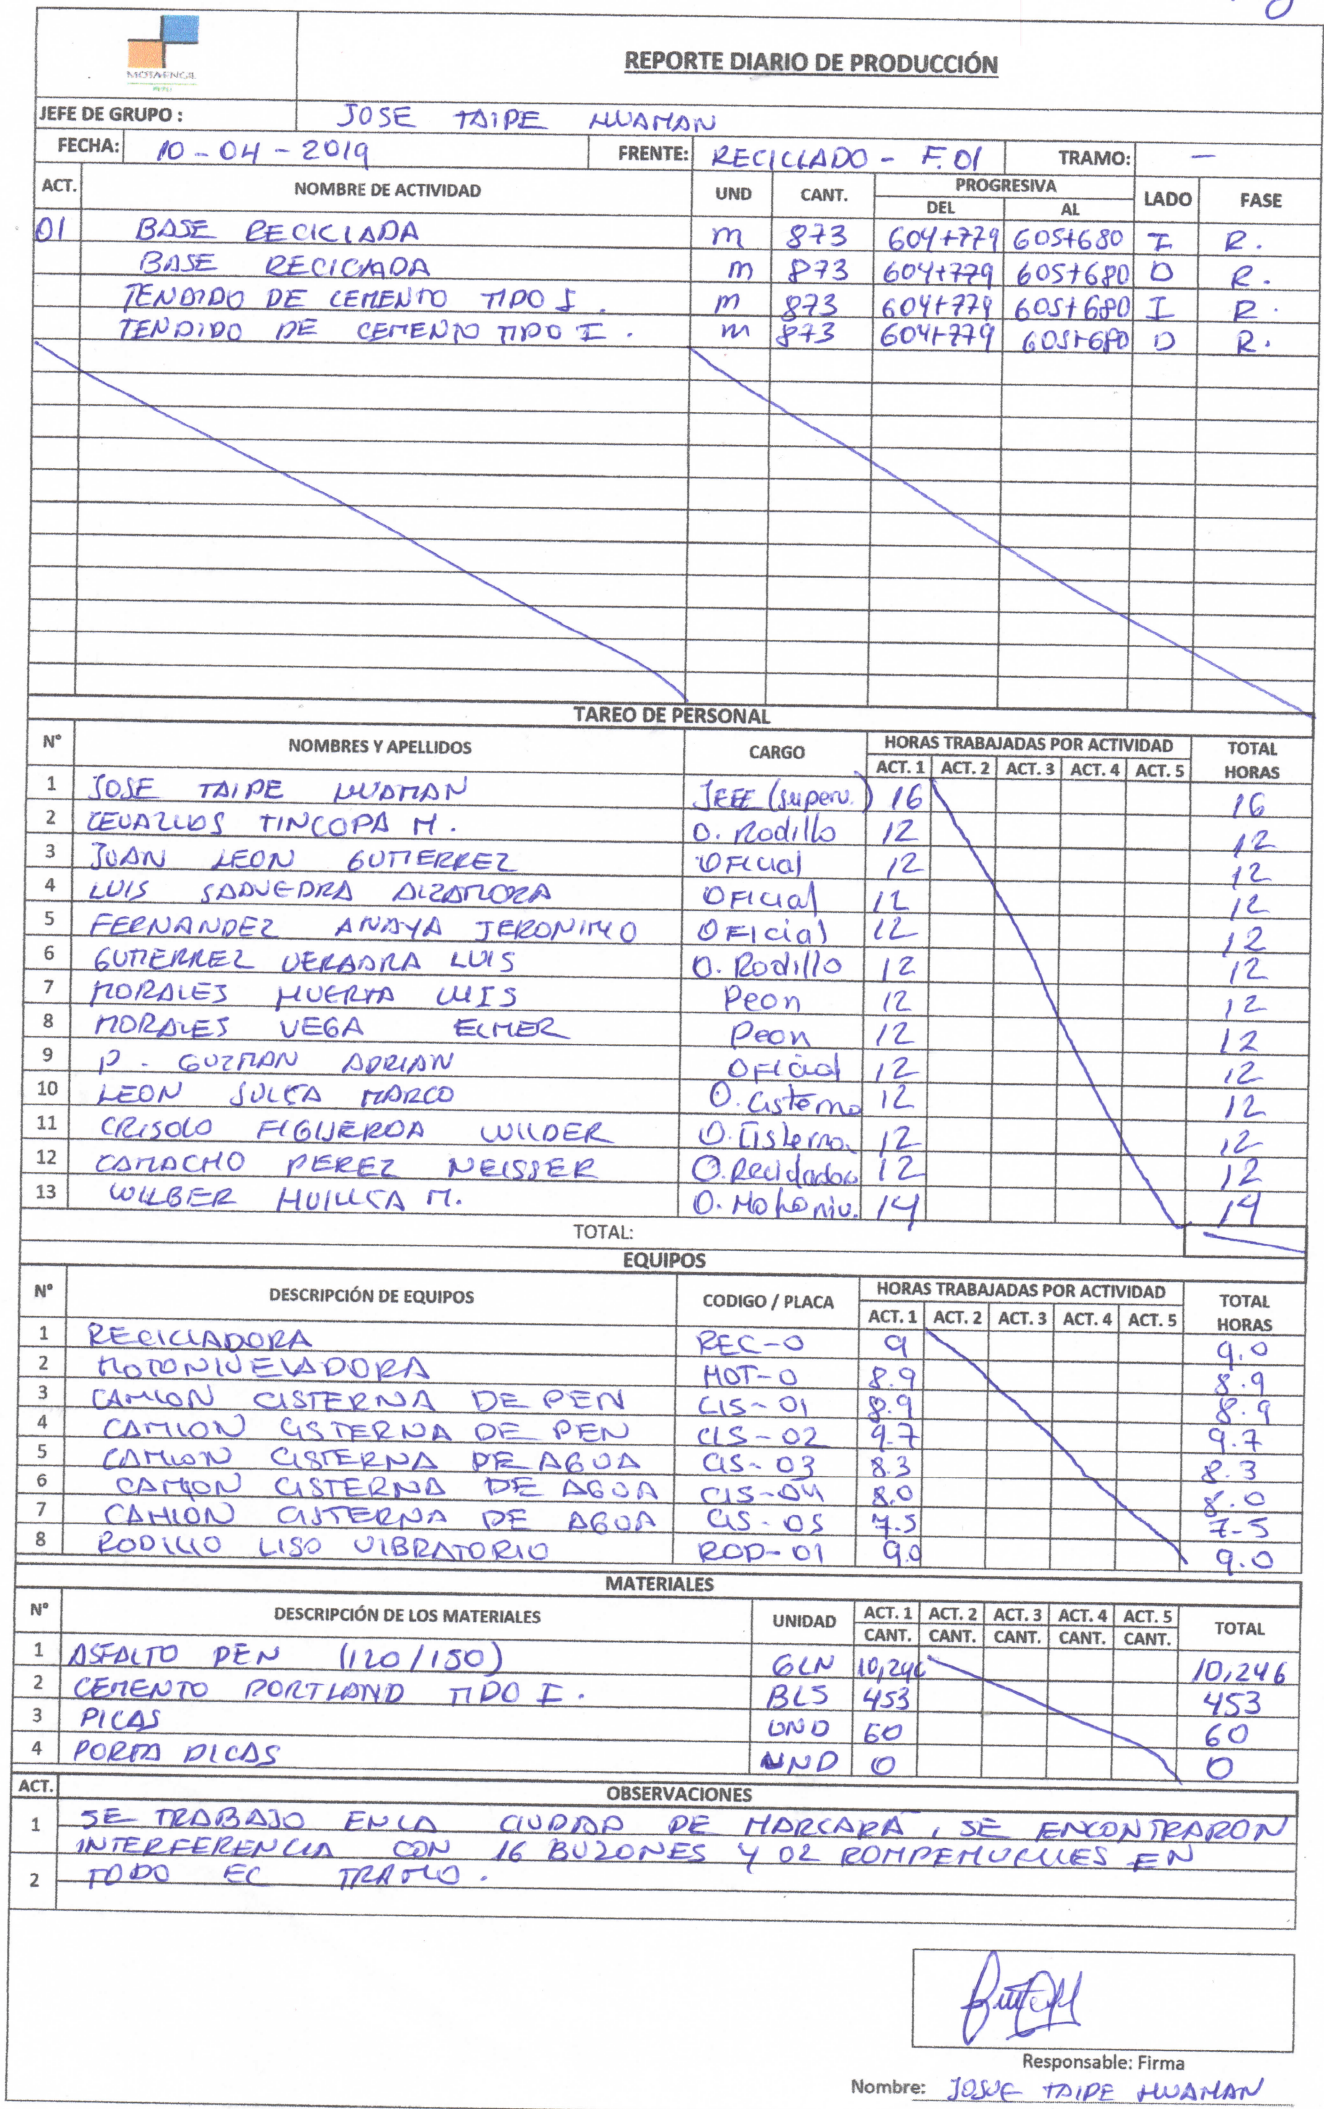 MOTA-ENGIL
PERU
REPORTE DIARIO DE PRODUCCIÓN
JEFE DE GRUPO : JOSE TAIPE HUAMAN
FECHA: 10-04-2019 FRENTE: RECICLADO - F.01 TRAMO: —
ACT. NOMBRE DE ACTIVIDAD UND CANT. PROGRESIVA LADO FASE
DEL AL
01 BASE RECICLADA m 873 604+779 605+680 I R.
BASE RECICLADA m 873 604+779 605+680 D R.
TENDIDO DE CEMENTO TIPO I. m 873 604+779 605+680 I R.
TENDIDO DE CEMENTO TIPO I. m 873 604+779 605+680 D R.
TAREO DE PERSONAL
N° NOMBRES Y APELLIDOS CARGO HORAS TRABAJADAS POR ACTIVIDAD TOTAL HORAS
ACT. 1 ACT. 2 ACT. 3 ACT. 4 ACT. 5
1 JOSE TAIPE HUAMAN JEFE (superv.) 16 16
2 CEVALLOS TINCOPA M. O. Rodillo 12 12
3 JUAN LEON GUTIERREZ OFICIAL 12 12
4 LUIS SAAVEDRA ALZAMORA OFICIAL 12 12
5 FERNANDEZ ANAYA JERONIMO OFICIAL 12 12
6 GUTIERREZ VERGARA LUIS O. Rodillo 12 12
7 MORALES HUERTA LUIS Peon 12 12
8 MORALES VEGA ELMER Peon 12 12
9 P. GUZMAN ADRIAN OFICIAL 12 12
10 LEON SULCA MARCO O. Cisterna 12 12
11 CRISOLO FIGUEROA WILDER O. Cisterna 12 12
12 CAMACHO PEREZ NEISSER O. Recicladora 12 12
13 WILBER HUILLCA M. O. Motoniv. 14 14
TOTAL:
EQUIPOS
N° DESCRIPCIÓN DE EQUIPOS CODIGO / PLACA HORAS TRABAJADAS POR ACTIVIDAD TOTAL HORAS
ACT. 1 ACT. 2 ACT. 3 ACT. 4 ACT. 5
1 RECICLADORA REC-0 9 9.0
2 MOTONIVELADORA MOT-0 8.9 8.9
3 CAMION CISTERNA DE PEN CIS-01 8.9 8.9
4 CAMION CISTERNA DE PEN CIS-02 9.7 9.7
5 CAMION CISTERNA DE AGUA CIS-03 8.3 8.3
6 CAMION CISTERNA DE AGUA CIS-04 8.0 8.0
7 CAMION CISTERNA DE AGUA CIS-05 7.5 7-5
8 RODILLO LISO VIBRATORIO ROD-01 9.0 9.0
MATERIALES
N° DESCRIPCIÓN DE LOS MATERIALES UNIDAD ACT. 1 ACT. 2 ACT. 3 ACT. 4 ACT. 5 TOTAL
CANT. CANT. CANT. CANT. CANT.
1 ASFALTO PEN (120/150) GLN 10,246 10,246
2 CEMENTO PORTLAND TIPO I. BLS 453 453
3 PICAS UND 60 60
4 PORTA PICAS UND 0 0
ACT. OBSERVACIONES
1 SE TRABAJO EN LA CIUDAD DE MARCARA, SE ENCONTRARON
INTERFERENCIA CON 16 BUZONES Y 02 ROMPEMUELLES EN
2 TODO EL TRAMO.
Responsable: Firma
Nombre: JOSUE TAIPE HUAMAN